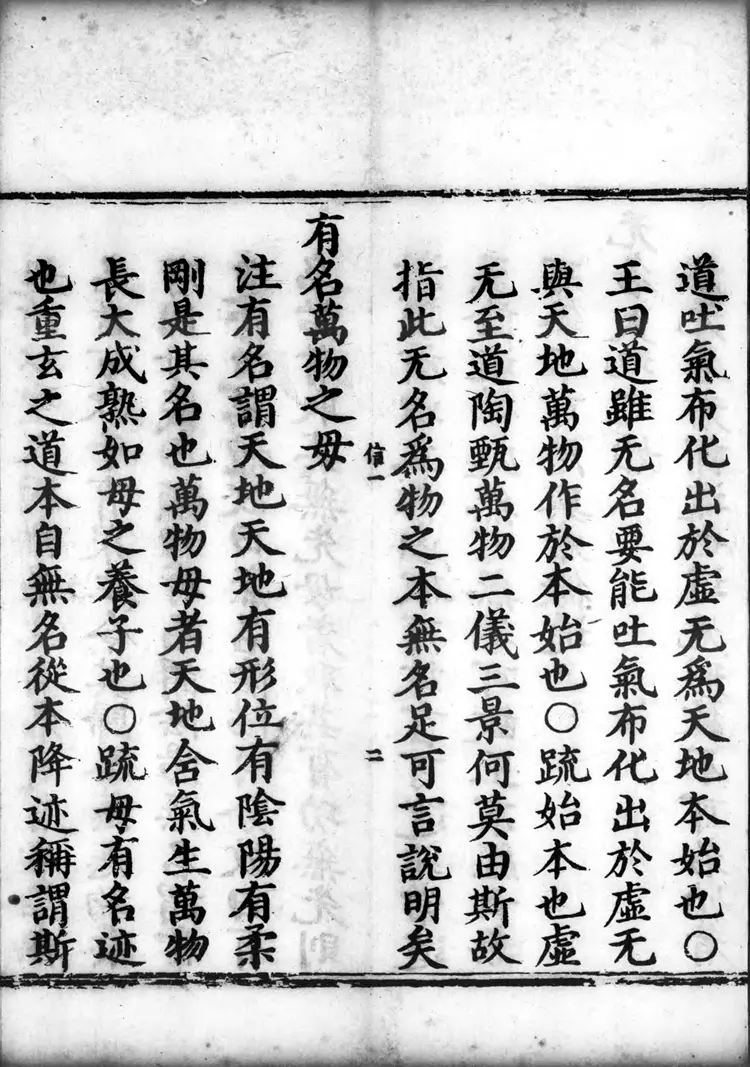 道吐氣布化出於虛无爲天地本始也〇
王曰道雖无名要能吐氣布化出於虛无
與天地萬物作於本始也〇疏始本也虛
无至道陶甄萬物二儀三景何莫由斯故
指此无名爲物之本無名足可言說明矣
信一
二
有名萬物之母
注有名謂天地天地有形位有陰陽有柔
剛是其名也萬物母者天地含氣生萬物
長大成熟如母之養子也〇疏母有名迹
也重玄之道本自無名從本降迹稱謂斯